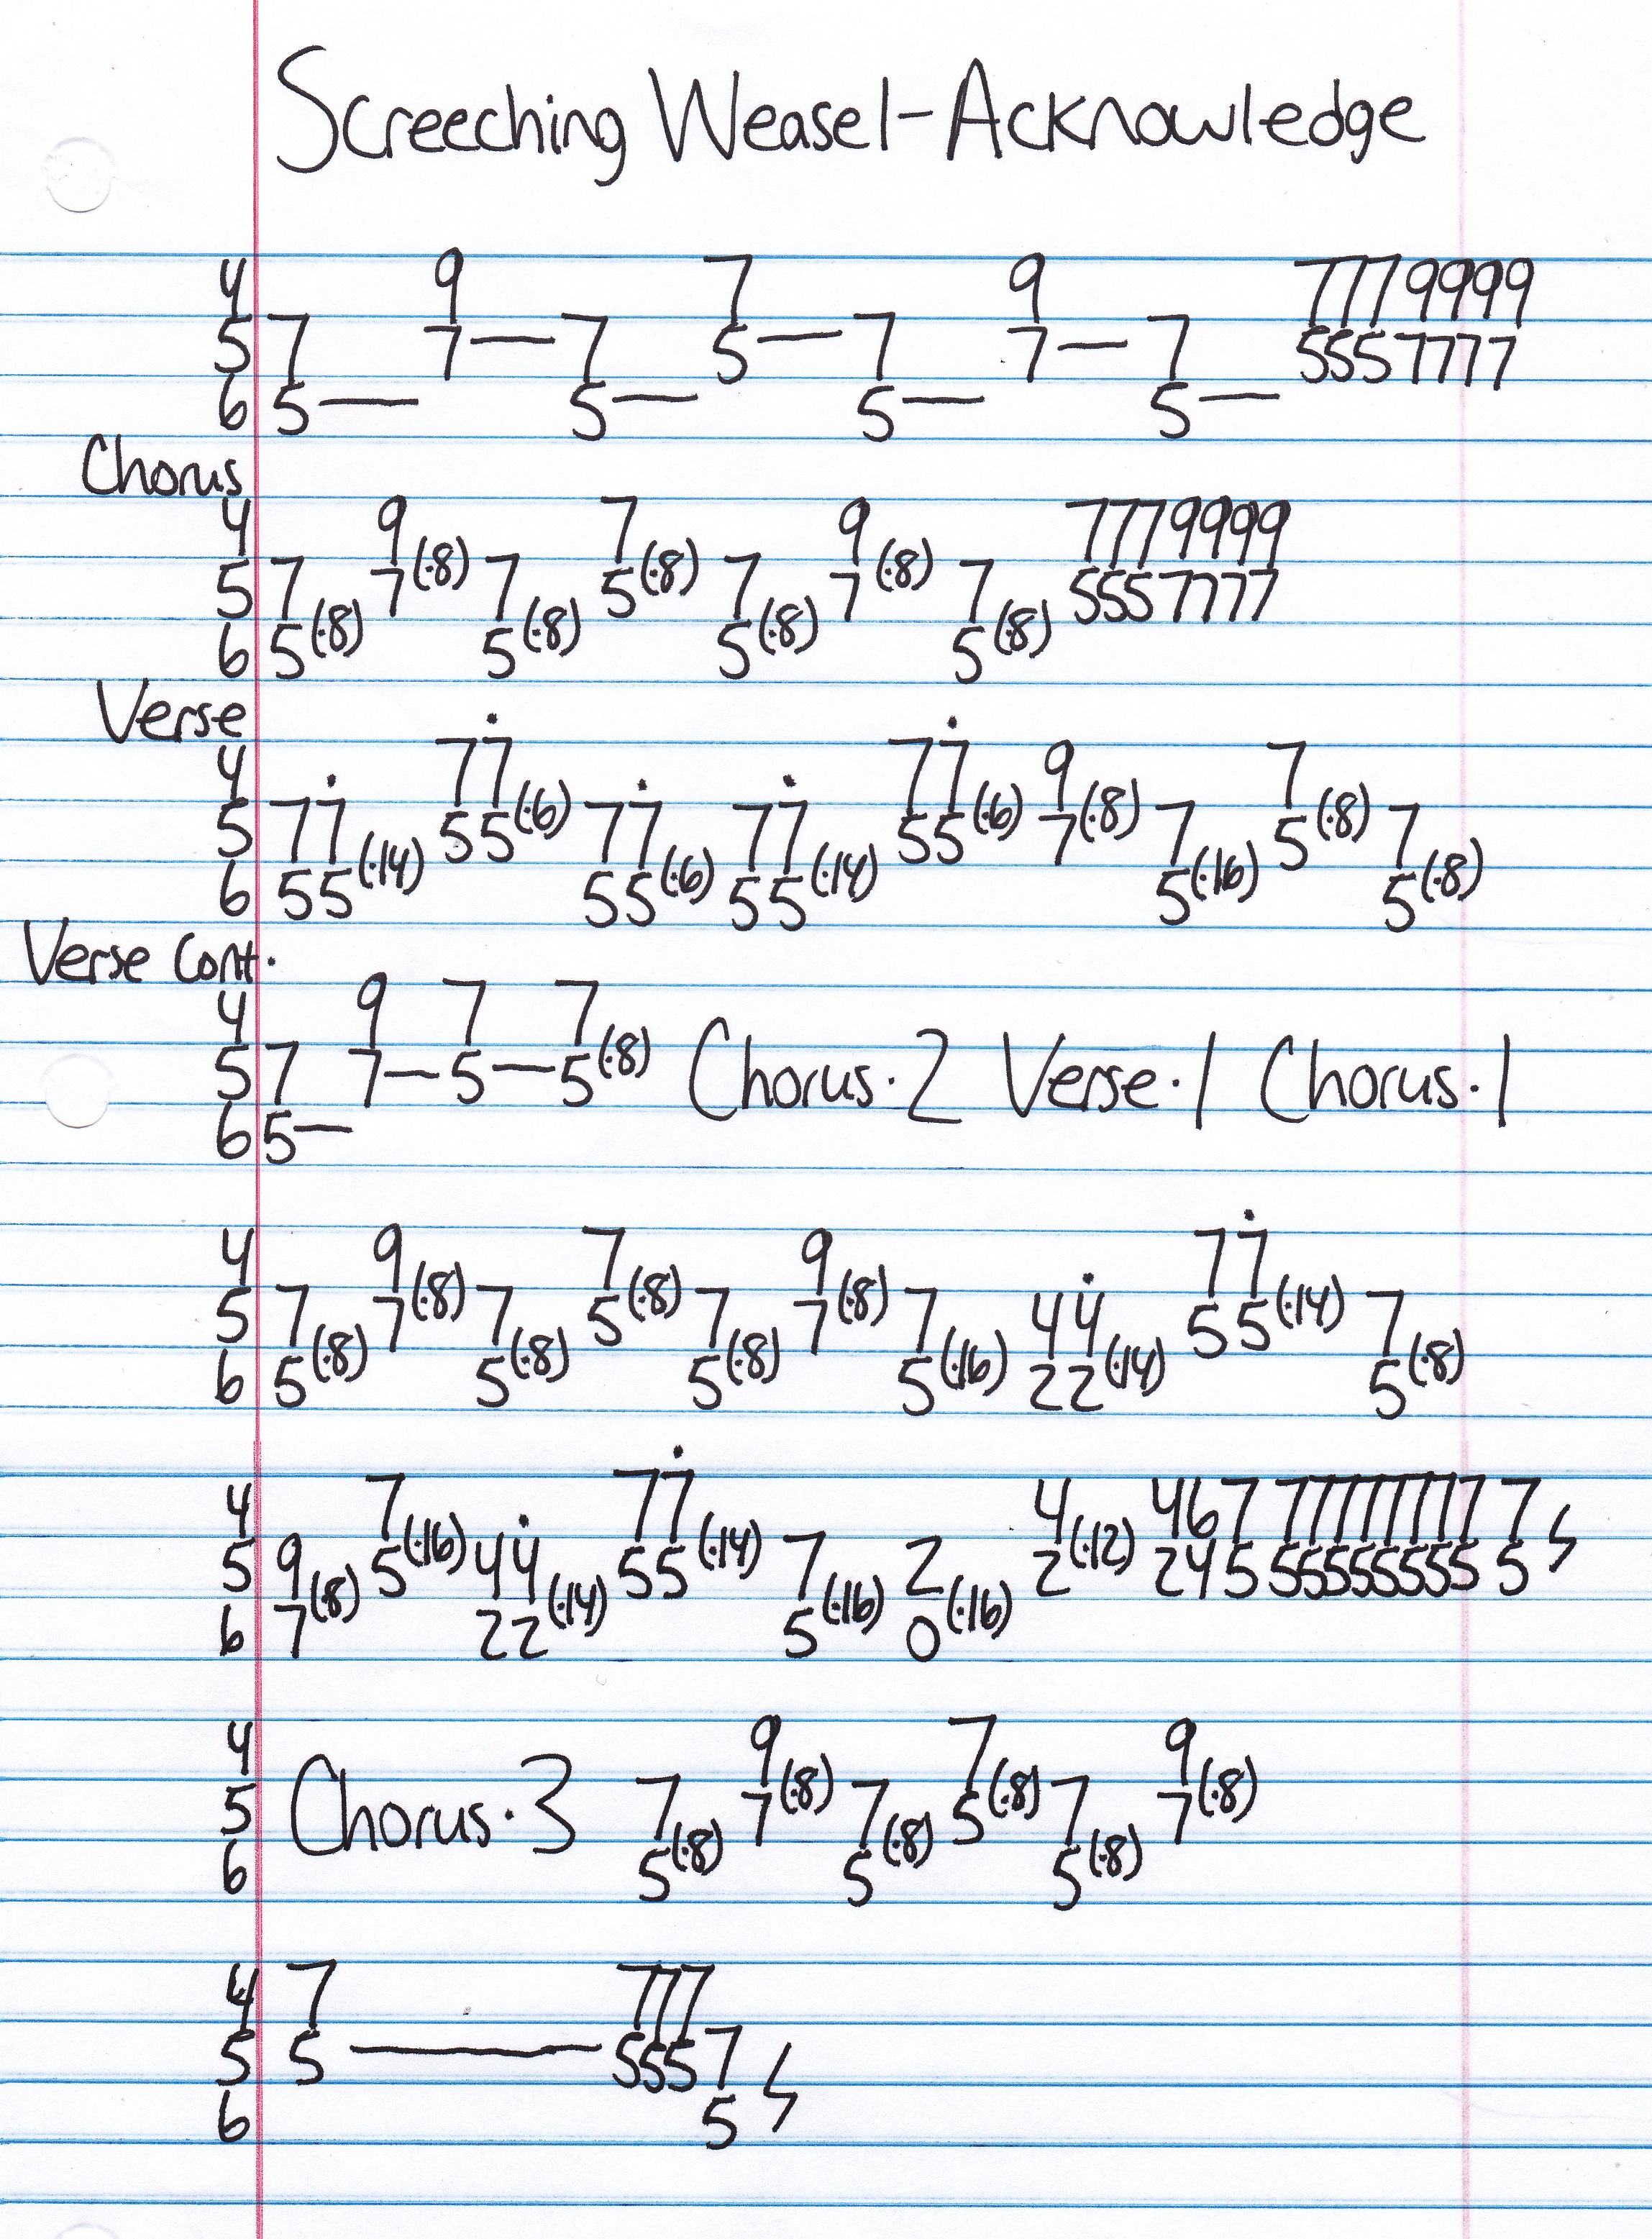 Screeching Weasel-Acknowledge
4 9 7 9 7779999
5 7 7— 7 5— 7 7— 7 5557777
6 5— 5— 5— 5—
Chorus
4 9 7 9 7779999
5 7 7(·8) 7 5(·8) 7 7(·8) 7 5557777
6 5(·8) 5(·8) 5(·8) 5(·8)
Verse
4 77̇ 77̇ 9 7
5 77̇ 55(·6) 77̇ 77̇ 55(·6) 7(·8) 7 5(·8) 7
6 55(·14) 55(·6) 55(·14) 5(·16) 5(·8)
Verse Cont.
4 9 7 7
5 7 7—5—5(·8) Chorus·2 Verse·1 Chorus·1
6 5—
4 9 7 9 77̇
5 7 7(·8) 7 5(·8) 7 7(·8) 7 44̇ 55(·14) 7
6 5(·8) 5(·8) 5(·8) 5(·16) 22(·14) 5(·8)
4 7 77̇ 4 467 77777777 7
5 9 5(·16) 44̇ 55(·14) 7 2 2(·12) 245 55555555 5
6 7(·8) 22(·14) 5(·16) 0(·16)
4 9 7 9
5 Chorus·3 7 7(·8) 7 5(·8) 7 7(·8)
6 5(·8) 5(·8) 5(·8)
4 7 777
5 5 — 5557
6 5